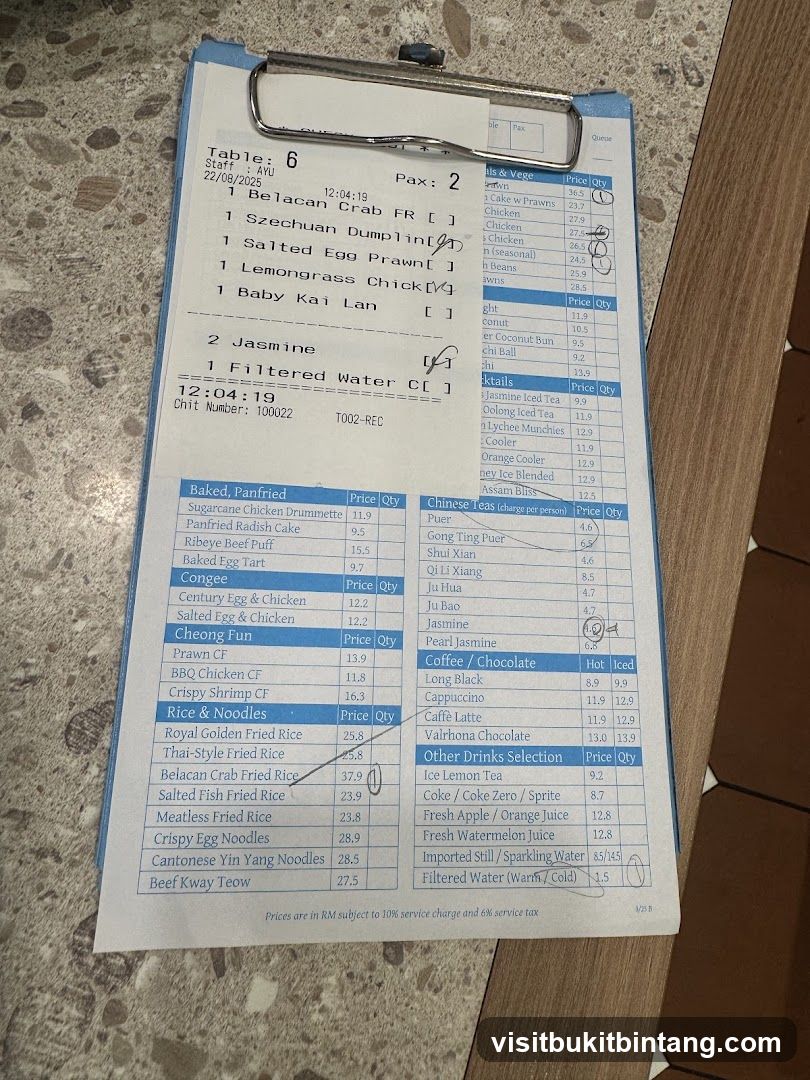 Table: 6
Pax: 2
Staff : AYU
22/08/2025
12:04:19
1 Belacan Crab FR [ ]
1 Szechuan Dumplin[ ]
1 Salted Egg Prawn[ ]
1 Lemongrass Chick[ ]
1 Baby Kai Lan [ ]
2 Jasmine [ ]
1 Filtered Water C[ ]
12:04:19
Chit Number: 100022 T002-REC
Pax
Queue
& Vege Price Qty
36.5 1
Cake w Prawns 23.7
Chicken 27.9
Chicken 27.5
Chicken 26.5
(seasonal) 24.5
Beans 25.9
28.5
Price Qty
11.9
10.5
Coconut Bun 9.5
Ball 9.2
13.9
Jasmine Iced Tea 9.9
Oolong Iced Tea 11.9
Lychee Munchies 12.9
Cooler 11.9
Orange Cooler 12.9
Ice Blended 12.9
Assam Bliss 12.5
Baked, Panfried Price Qty
Sugarcane Chicken Drummette 11.9
Panfried Radish Cake 9.5
Ribeye Beef Puff 15.5
Baked Egg Tart 9.7
Congee Price Qty
Century Egg & Chicken 12.2
Salted Egg & Chicken 12.2
Cheong Fun Price Qty
Prawn CF 13.9
BBQ Chicken CF 11.8
Crispy Shrimp CF 16.3
Rice & Noodles Price Qty
Royal Golden Fried Rice 25.8
Thai-Style Fried Rice 25.8
Belacan Crab Fried Rice 37.9 1
Salted Fish Fried Rice 23.9
Meatless Fried Rice 23.8
Crispy Egg Noodles 28.9
Cantonese Yin Yang Noodles 28.5
Beef Kway Teow 27.5
Chinese Teas (charge per person) Price Qty
Puer 4.6
Gong Ting Puer 6.5
Shui Xian 4.6
Qi Li Xiang 8.5
Ju Hua 4.7
Ju Bao 4.7
Jasmine 4.6 2
Pearl Jasmine 6.8
Coffee / Chocolate Hot Iced
Long Black 8.9 9.9
Cappuccino 11.9 12.9
Caffè Latte 11.9 12.9
Valrhona Chocolate 13.0 13.9
Other Drinks Selection Price Qty
Ice Lemon Tea 9.2
Coke / Coke Zero / Sprite 8.7
Fresh Apple / Orange Juice 12.8
Fresh Watermelon Juice 12.8
Imported Still / Sparkling Water 8.5/14.5
Filtered Water (Warm / Cold) 1.5 1
Prices are in RM subject to 10% service charge and 6% service tax
visitbukitbintang.com